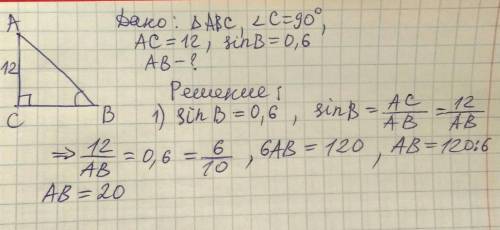 A
12
C
B
Дано: ΔABC, ∠C=90°,
AC=12, sinB=0,6
AB-?
Решение:
1) sinB=0,6, sinB=AC/AB=12/AB
⇒ 12/AB=0,6=6/10, 6AB=120, AB=120:6
AB=20